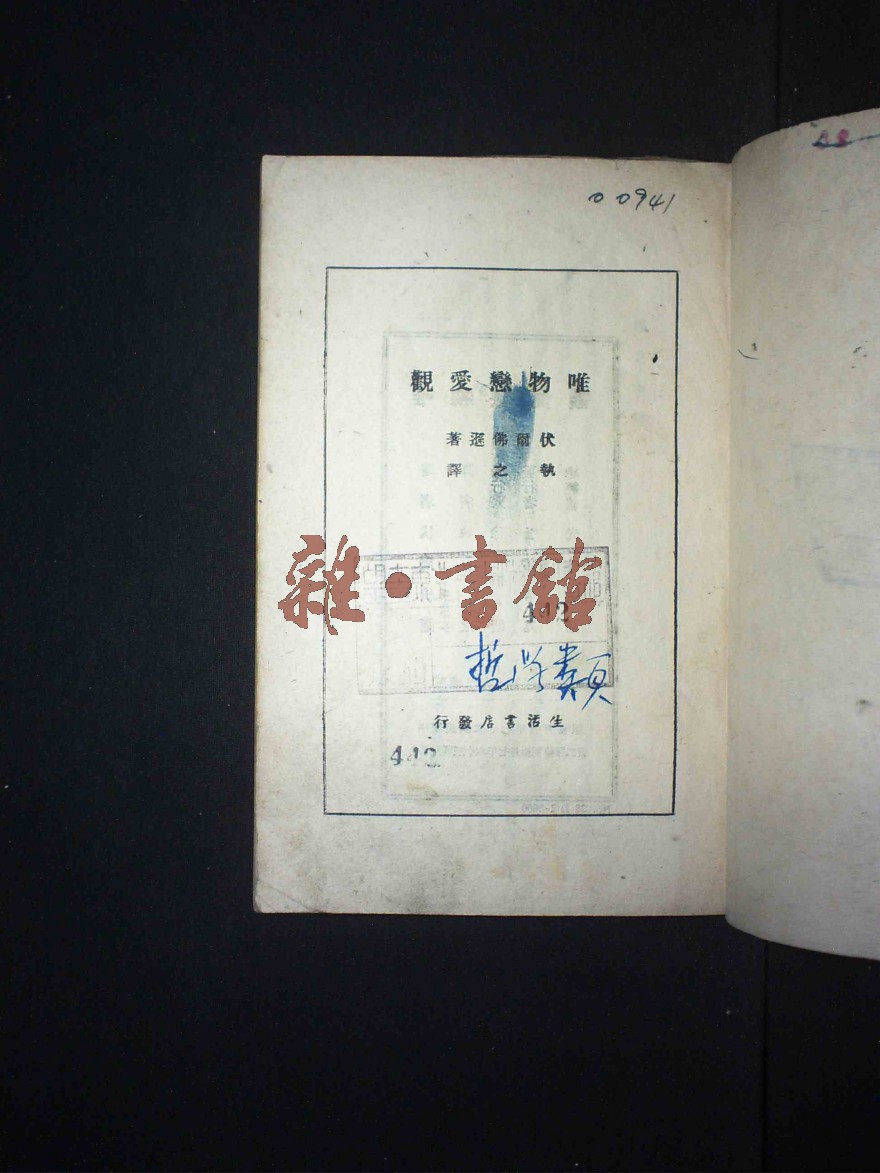 00941
唯物戀愛觀
伏爾佛遜著
執之譯
雜·書館
442
哲学類
生活書店發行
442